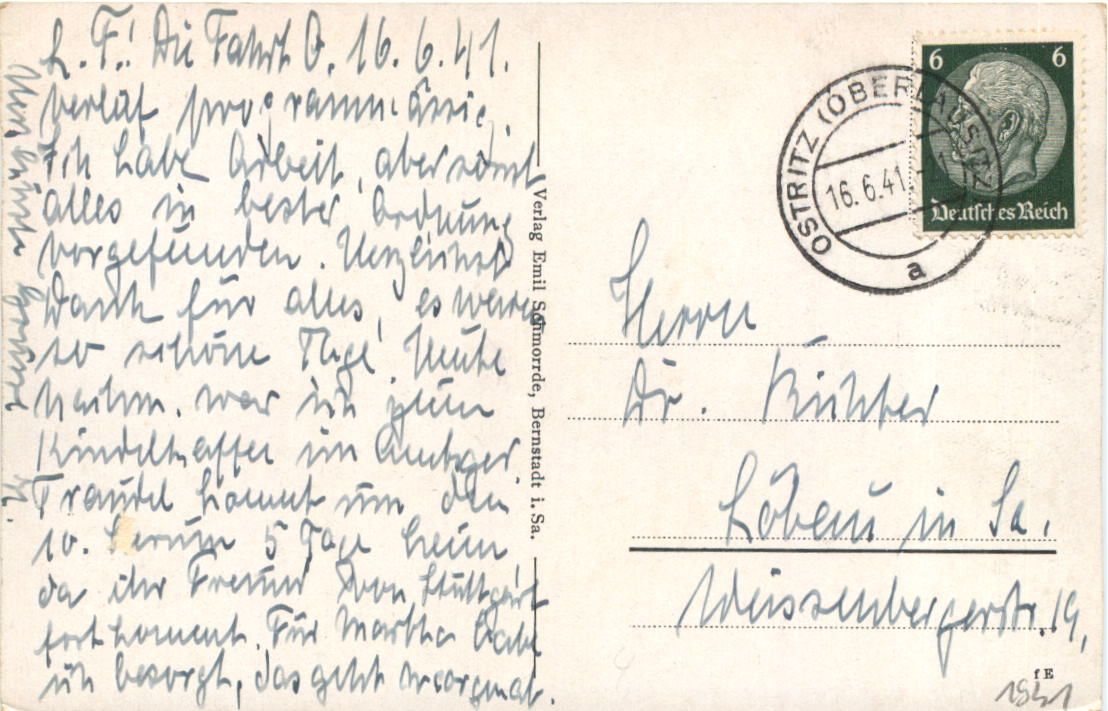 L. F.! Die Fahrt O. 16.6.41.
verlief programmässig.
Ich habe Arbeit, aber sonst
alles in bester Ordnung
vorgefunden. Herzlichst
Dank für alles, es waren
so schöne Tage. Heute
nachm. war ich zum
Kindelkaffee im
Traudel kommt um den
10. herum 5 Tage heim
da ihr Freund von Stuttgart
fortkommt. Für Martha habe
ich besorgt, das geht morgen ab.
Herzlichste Grüsse
Verlag Emil Schmorrde, Bernstadt i. Sa.
OSTRITZ (OBERLAUSITZ)
16.6.41
a
6 6
Deutsches Reich
Herrn
Dr. Richter
Löbau in Sa.
Weissenbergerstr. 19,
f E
1941